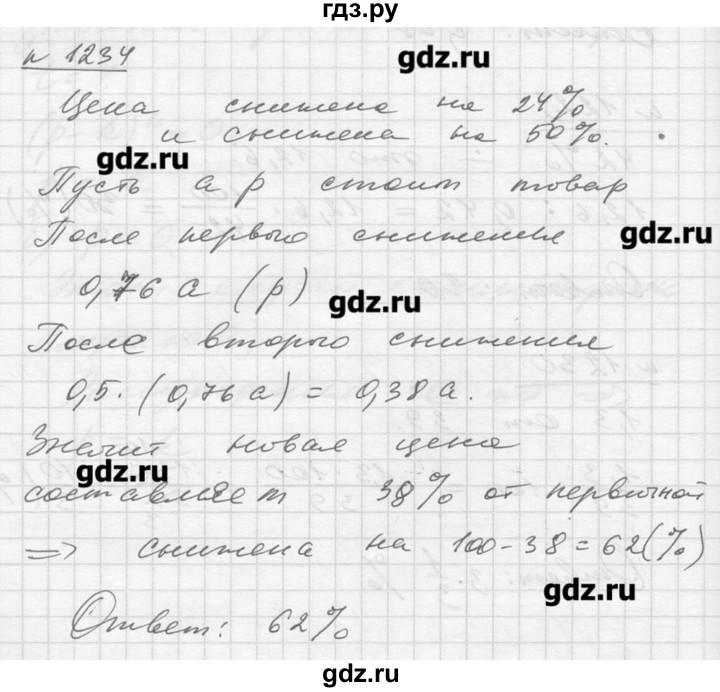 гдз.ру
н 1234
gdz.ru
Цена снижена на 24%
и снижена на 50%.
gdz.ru
Пусть а р стоит товар
После первого снижения
gdz.ru
0,76 а (р)
gdz.ru
После второго снижения
0,5.(0,76а) = 0,38а.
Значит новая цена
gdz.ru
составляет 38% от первичной
=> снижена на 100-38=62(%)
gdz.ru
Ответ: 62%
gdz.ru